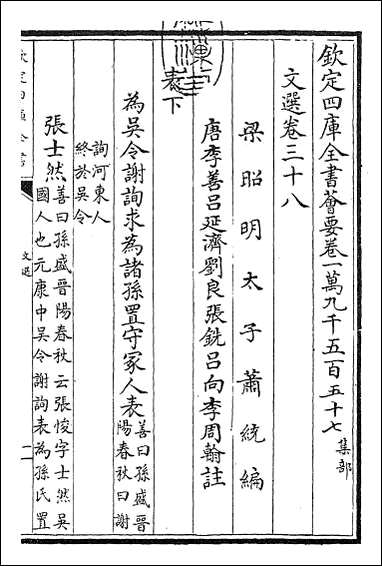 欽定四庫全書薈要卷一萬九千五百五十七 集部
文選卷三十八
梁昭明太子蕭統編
唐李善呂延濟劉良張銑呂向李周翰註
表下
為吳令謝詢求為諸孫置守冢人表 善曰孫盛晉
陽春秋曰謝
詢河東人
終於吳令
張士然 善曰孫盛晉陽春秋云張悛字士然吳
國人也元康中吳令謝詢表為孫氏置
文選